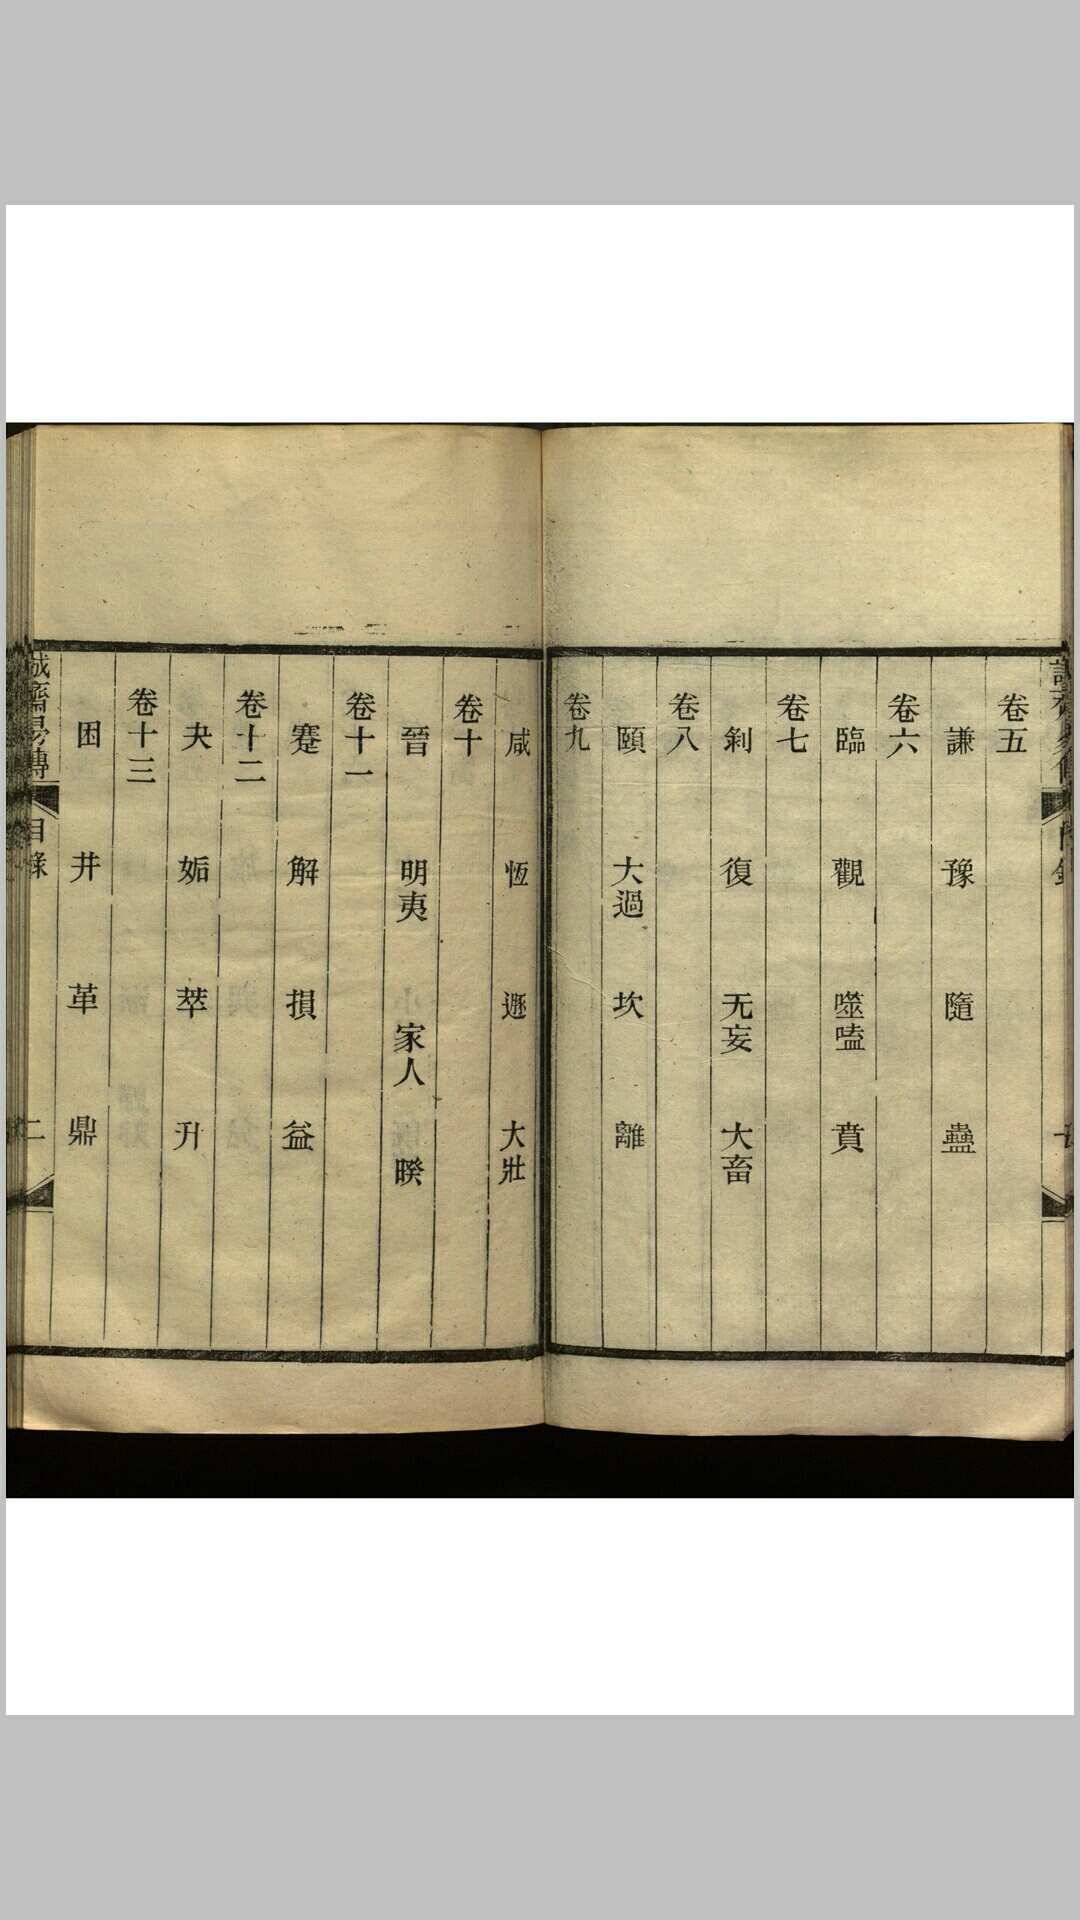 卷五
謙 豫 隨 蠱
卷六
臨 觀 噬嗑 賁
卷七
剝 復 无妄 大畜
卷八
頤 大過 坎 離
卷九
咸 恆 遯 大壯
卷十
晉 明夷 家人 睽
卷十一
蹇 解 損 益
卷十二
夬 姤 萃 升
卷十三
困 井 革 鼎
誠齋易傳 目錄 二